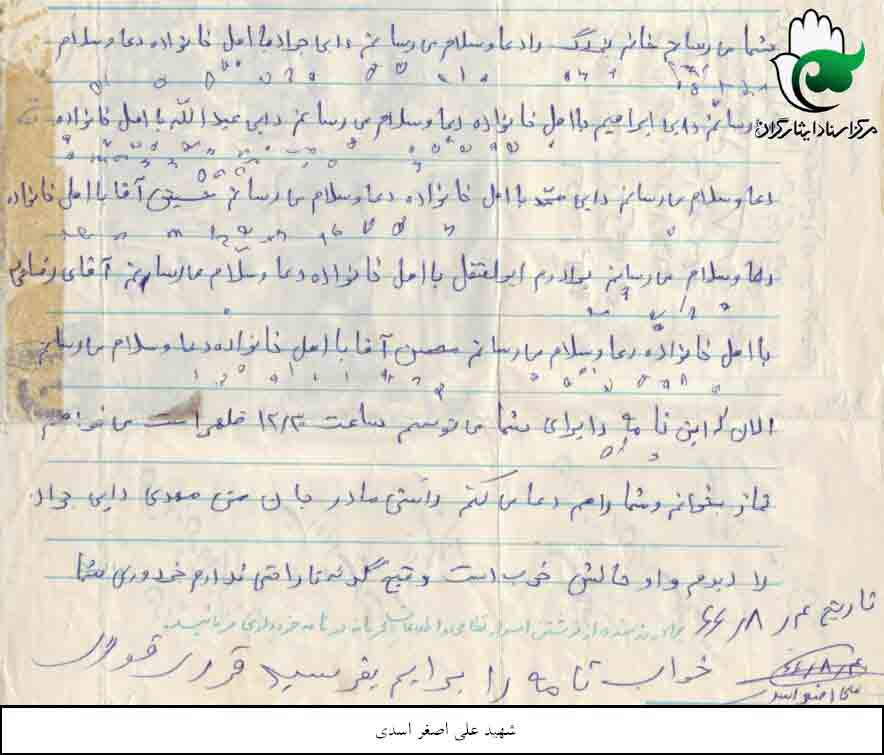 شما می رسانم خانم بزرگ را دعا و سلام می رسانم دایی جواد با اهل خانواده دعا و سلام
مرکز اسناد ایثارگران
می رسانم دایی ابراهیم با اهل خانواده دعا و سلام می رسانم دایی عبدالله با اهل خانواده
دعا و سلام می رسانم دایی محمد با اهل خانواده دعا و سلام می رسانم آقا با اهل خانواده
دعا و سلام می رسانم برادرم ابوالفضل با اهل خانواده دعا و سلام می رسانم آقای
با اهل خانواده دعا و سلام می رسانم محسن آقا با اهل خانواده دعا و سلام می رسانم
الان که این نامه را برای شما می نویسم ساعت ۱۲/۳۰ ظهر است می خواهم
نماز بخوانم و شما را هم دعا می کنم راستی مادر جان من مهدی دایی جواد
را دیدم و او حالش خوب است و هیچ گونه ناراحتی ندارم جز دوری شما
تاریخ ۶۶/۸/۴
جواب نامه را برایم بفرستید فوری فوری
۶۶/۸/۴
علی اصغر اسدی
شهید علی اصغر اسدی